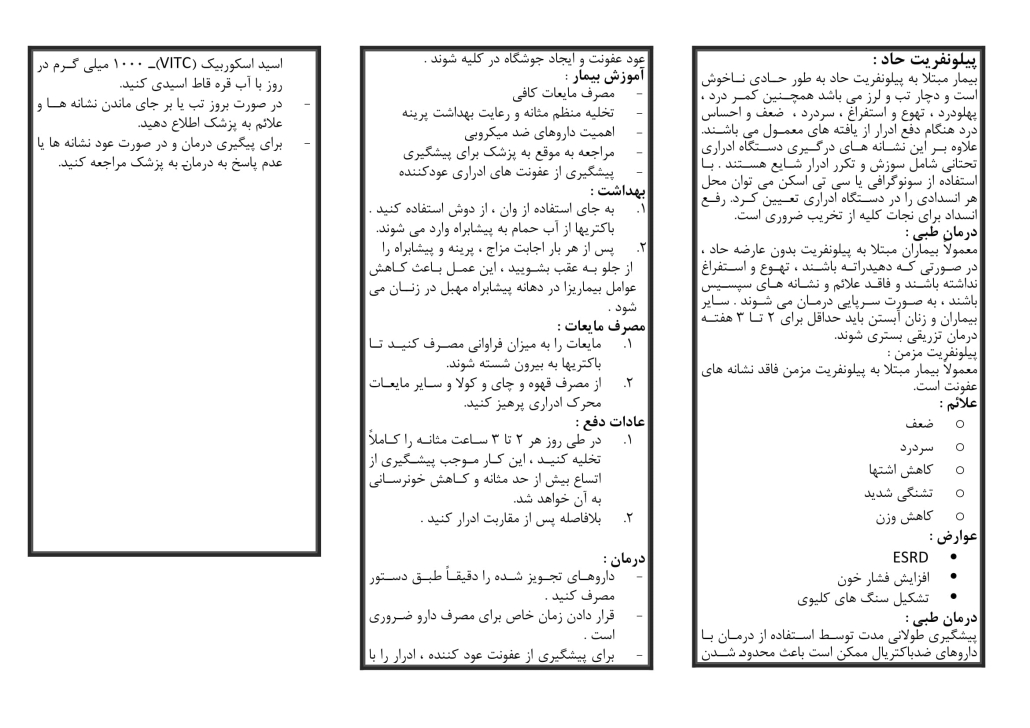 پیلونفریت حاد :
بیمار مبتلا به پیلونفریت حاد به طور حـادی نـاخوش
است و دچار تب و لرز می باشد همچـنین کمـر درد ،
پهلودرد ، تهوع و استفراغ ، سردرد ، ضعف و احساس
درد هنگام دفع ادرار از یافته های معمـول می باشـند.
علاوه بـر این نشـانه هـای درگـیری دسـتگاه ادراری
تحتانی شامل سوزش و تکرر ادرار شـایع هسـتند . بـا
استفاده از سونوگرافی یا سی تی اسکن می توان محل
هر انسدادی را در دسـتگاه ادراری تعـیین کـرد. رفـع
انسداد برای نجات کلیه از تخریب ضروری است.
درمان طبی :
معمولاً بیماران مبتلا به پیلونفریت بدون عارضه حاد ،
در صـورتی کـه دهیدراتـه باشـند ، تهـوع و اسـتفراغ
نداشته باشـند و فاقـد علائم و نشـانه هـای سپسـیس
باشند ، به صورت سـرپایی درمـان می شـوند . سـایر
بیماران و زنان آبستن باید حداقل برای ۲ تـا ۳ هفتـه
درمان تزریقی بستری شوند.
پیلونفریت مزمن :
معمولاً بیمار مبتلا به پیلونفریت مزمن فاقد نشانه های
عفونت است.
علائم :
○ ضعف
○ سردرد
○ کاهش اشتها
○ تشنگی شدید
○ کاهش وزن
عوارض :
• ESRD
• افزایش فشار خون
• تشکیل سنگ های کلیوی
درمان طبی :
پیشگیری طولانی مدت توسـط اسـتفاده از درمـان بـا
داروهای ضدباکتریال ممکن است باعث محدود شـدن
عود عفونت و ایجاد جوشگاه در کلیه شوند .
آموزش بیمار :
- مصرف مایعات کافی
- تخلیه منظم مثانه و رعایت بهداشت پرینه
- اهمیت داروهای ضد میکروبی
- مراجعه به موقع به پزشک برای پیشگیری
- پیشگیری از عفونت های ادراری عودکننده
بهداشت :
۱. به جای استفاده از وان ، از دوش استفاده کنید .
باکتریها از آب حمام به پیشابراه وارد می شوند.
۲. پس از هر بار اجابت مزاج ، پرینه و پیشابراه را
از جلو بـه عقب بشـویید ، این عمـل بـاعث کـاهش
عوامل بیماریزا در دهانه پیشابراه مهبل در زنـان می
شود .
مصرف مایعات :
۱. مایعات را به میزان فراوانی مصـرف کنیـد تـا
باکتریها به بیرون شسته شوند.
۲. از مصرف قهوه و چای و کولا و سـایر مایعـات
محرک ادراری پرهیز کنید.
عادات دفع :
۱. در طی روز هر ۲ تا ۳ سـاعت مثانـه را کـاملاً
تخلیه کنیـد ، این کـار مـوجب پیشـگیری از
اتساع بیش از حد مثانه و کـاهش خونرسـانی
به آن خواهد شد.
۲. بلافاصله پس از مقاربت ادرار کنید .
درمان :
- داروهـای تجـویز شـده را دقیقـاً طبـق دسـتور
مصرف کنید .
- قرار دادن زمان خاص برای مصرف دارو ضـروری
است .
- برای پیشگیری از عفونت عود کننده ، ادرار را با
اسید اسکوربیک (VITC)ـ ۱۰۰۰ میلی گـرم در
روز با آب قره قاط اسیدی کنید.
- در صورت بروز تب یا بر جای ماندن نشانه هـا و
علائم به پزشک اطلاع دهید.
- برای پیگیری درمان و در صورت عود نشانه ها یا
عدم پاسخ به درمان به پزشک مراجعه کنید.